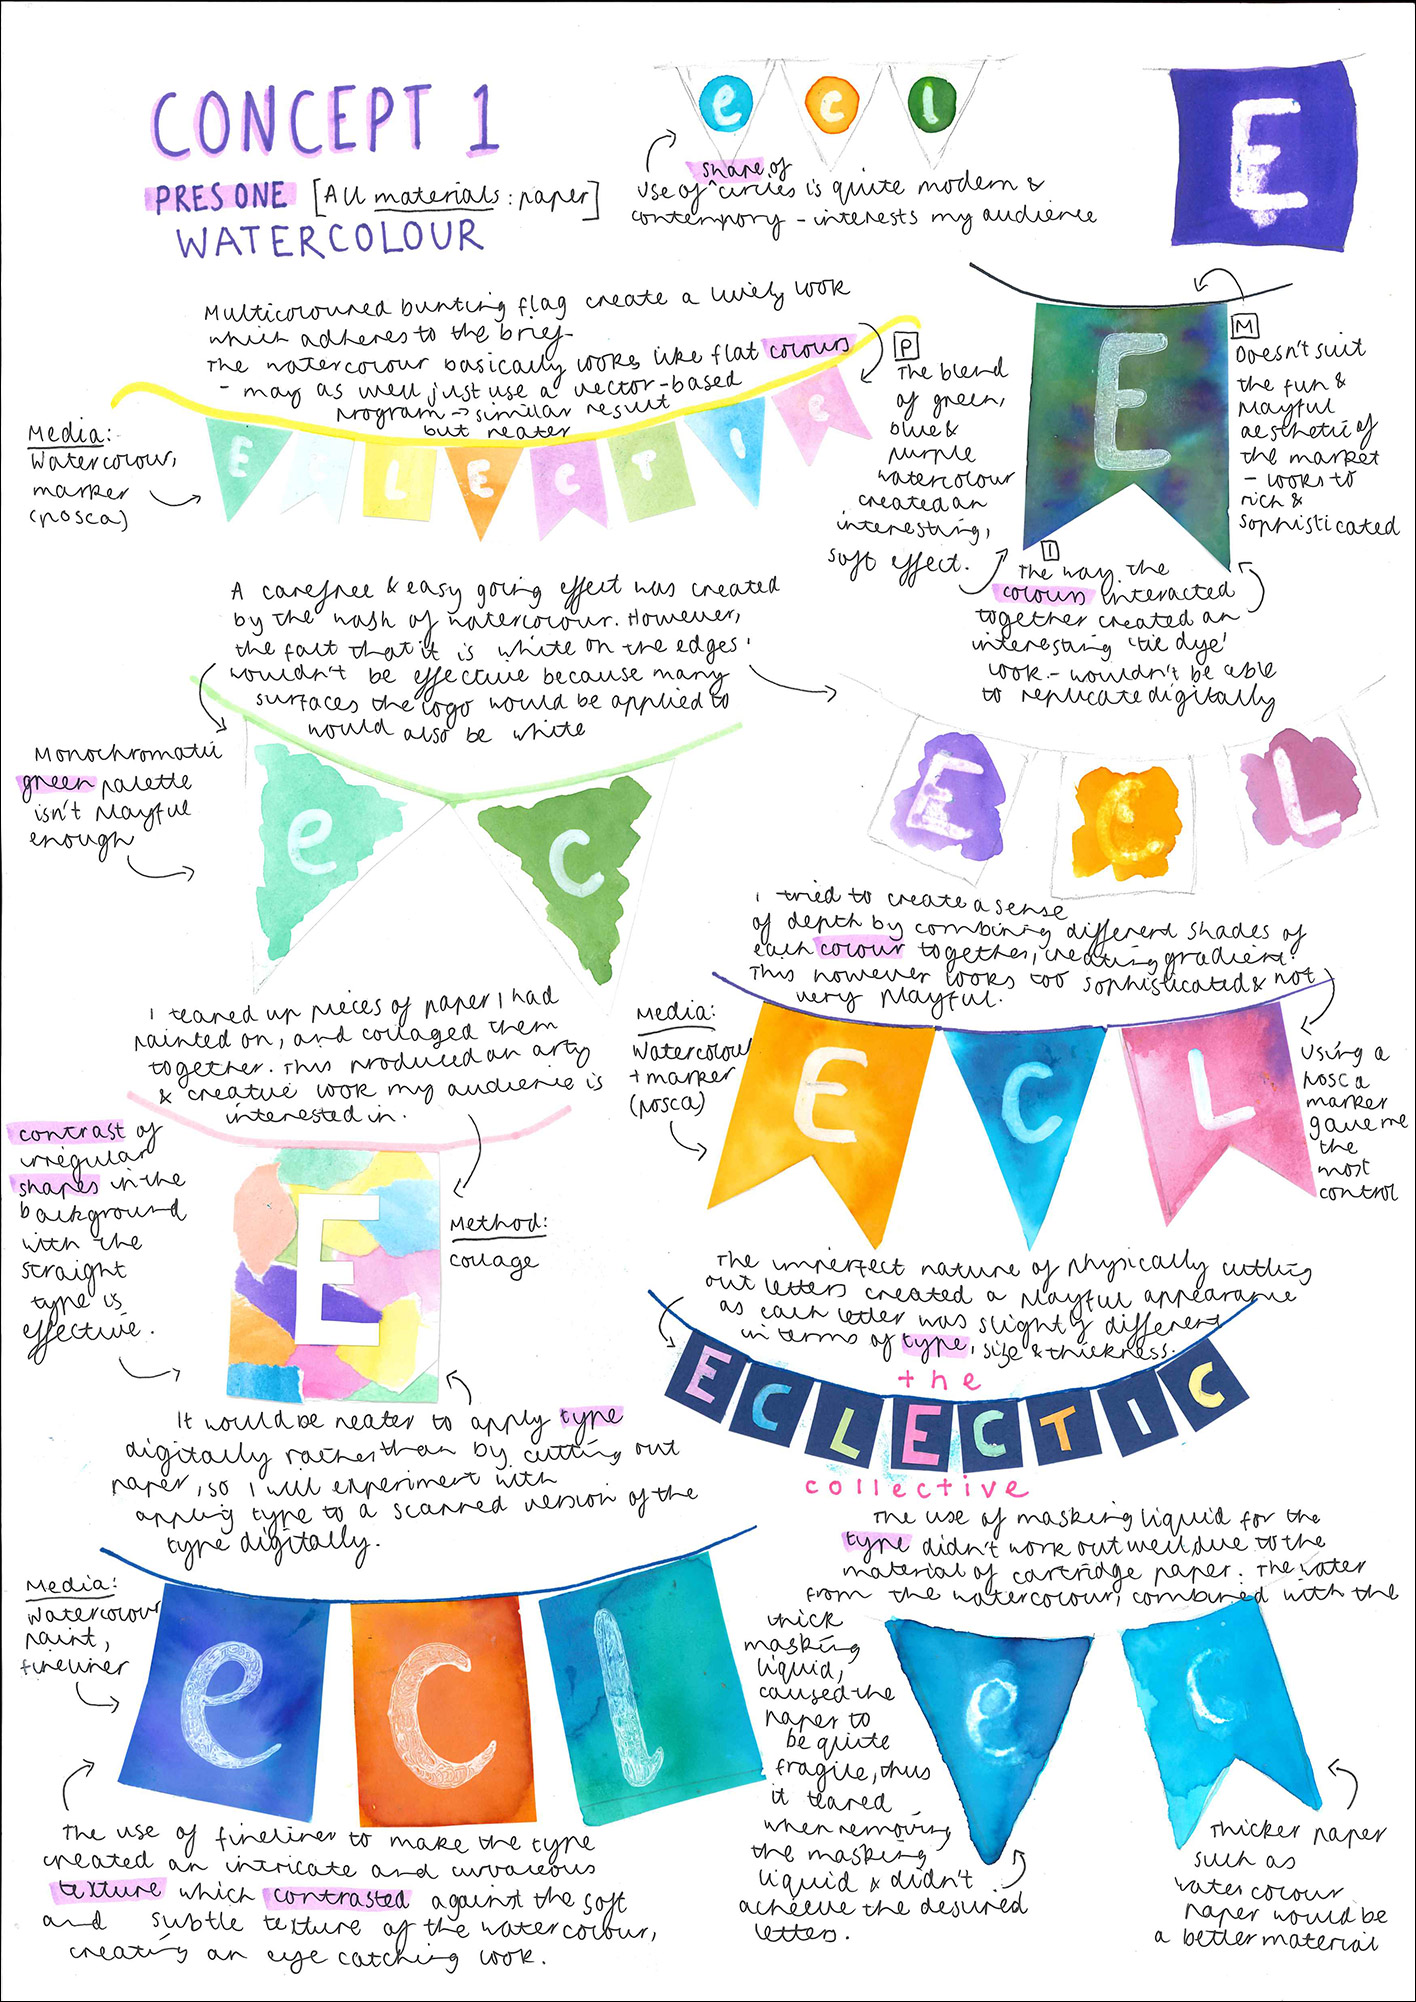 CONCEPT 1
PRES ONE [All materials: paper]
WATERCOLOUR
e c l
shape of
use of ^ circles is quite modern &
contempory - interests my audience
E
Multicoloured bunting flag create a lively look
which adheres to the brief -
The watercolour basically looks like flat colours
- may as well just use a vector-based
program -> similar result
but neater
Media:
watercolour,
marker
(posca)
E C L E C T I C
P
The blend
of green,
blue &
purple
watercolour
created an
interesting,
soft effect.
E
M
Doesn't suit
the fun &
playful
aesthetic of
the market
- looks to
rich &
sophisticated
I
The way the
colours interacted
together created an
interesting 'tie dye'
look - wouldn't be able
to replicate digitally
A carefree & easy going effect was created
by the wash of watercolour. However,
the fact that it is white on the edges
wouldn't be effective because many
surfaces the logo would be applied to
would also be white
Monochromatic
green palette
isn't playful
enough
e c
E C L
I tried to create a sense
of depth by combining different shades of
each colour together, creating gradient.
This however looks too sophisticated & not
very playful.
Media:
Watercolour
+ marker
(posca)
E C L
Using a
posca
marker
gave me
the
most
control
I teared up pieces of paper I had
painted on, and collaged them
together. This produced an arty
& creative look my audience is
interested in.
contrast of
irregular
shapes in the
background
with the
straight
type is
effective.
E
Method:
collage
It would be neater to apply type
digitally rather than by cutting out
paper, so I will experiment with
applying type to a scanned version of the
type digitally.
The imperfect nature of physically cutting
out letters created a playful appearance
as each letter was slightly different
in terms of type, size & thickness.
the
ECLECTIC
collective
Media:
Watercolour
paint,
fineliner
e c l
The use of fineliner to make the type
created an intricate and curvaceous
texture which contrasted against the soft
and subtle texture of the watercolour,
creating an eye catching look.
The use of masking liquid for the
type didn't work out well, due to the
material of cartridge paper. The water
from the watercolour, combined with the
thick
masking
liquid,
caused the
paper to
be quite
fragile, thus
it teared
when removing
the masking
liquid & didn't
acheeve the desired
letters.
e c
Thicker paper
such as
water colour
paper would be
a better material